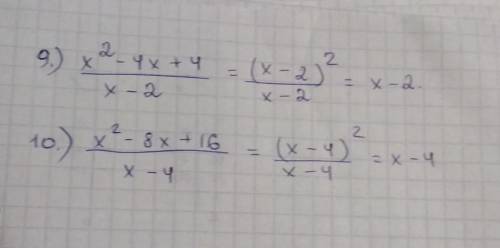 9.) (x² - 4x + 4)/(x - 2) = (x - 2)²/(x - 2) = x - 2.
10.) (x² - 8x + 16)/(x - 4) = (x - 4)²/(x - 4) = x - 4